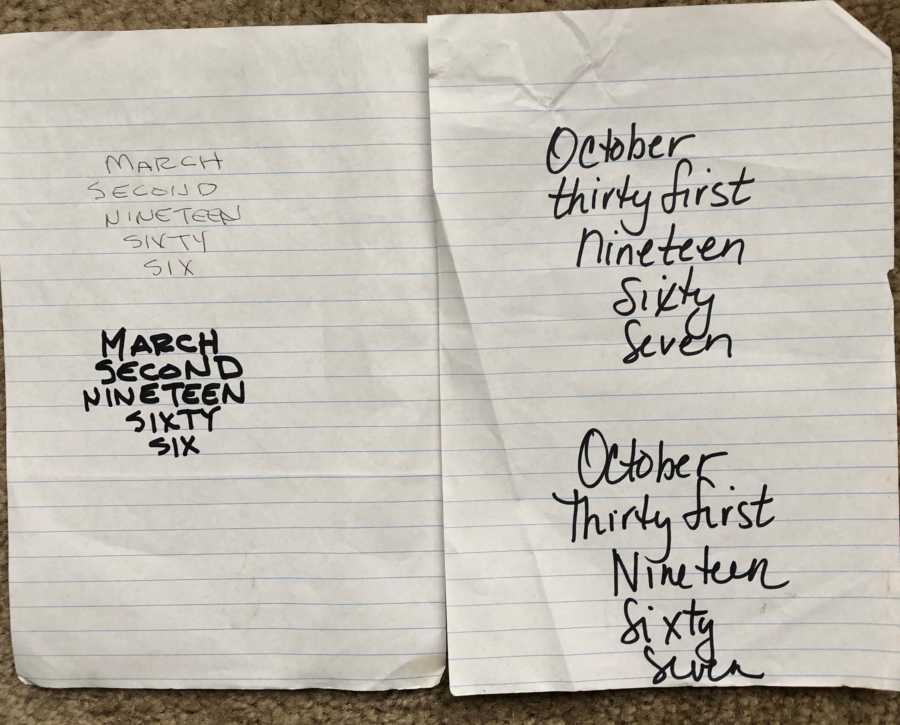 MARCH
SECOND
NINETEEN
SIXTY
SIX
MARCH
SECOND
NINETEEN
SIXTY
SIX
October
thirty first
nineteen
Sixty
Seven
October
Thirty first
Nineteen
Sixty
Seven